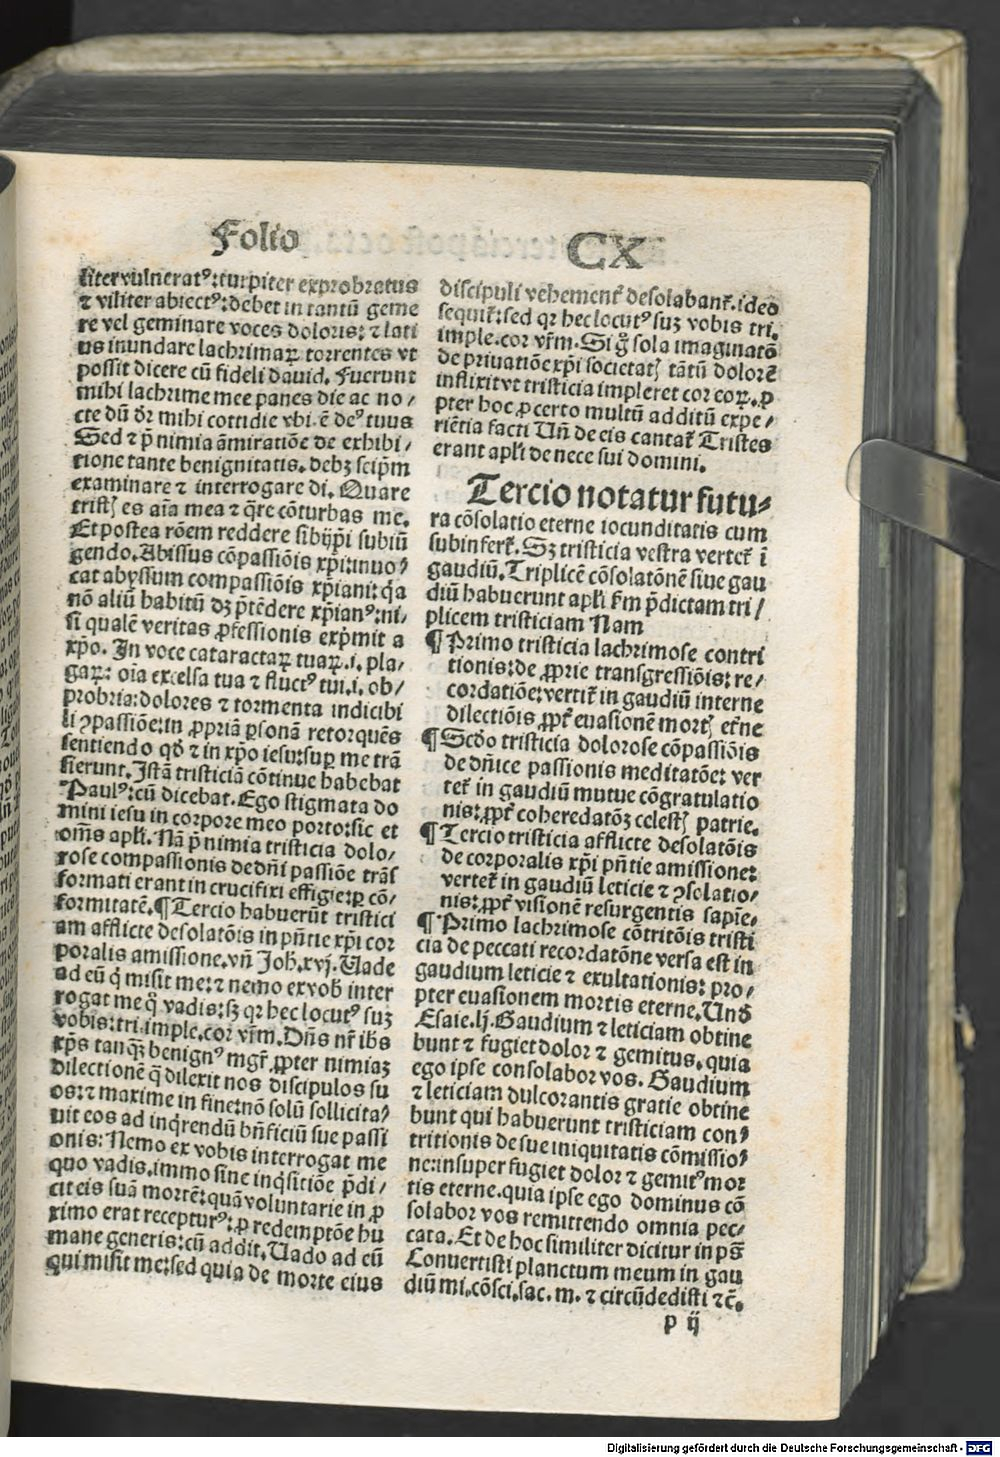 Folio CX
liter vulneratꝰ: turpiter exprobratus
⁊ viliter abiectꝰ: debet in tantū geme
re vel geminare voces doloris: ⁊ lati
us inundare lachrimaꝝ torrentes vt
possit dicere cū fideli dauid. Fuerunt
mihi lachrime mee panes die ac no/
cte dū dr̄ mihi cottidie vbi ē deꝰ tuus
Sed ⁊ p̄ nimia āmiratiōe de exhibi/
tione tante benignitatis. debꝫ seip̄m
examinare ⁊ interrogare di. Quare
tristꝭ es aīa mea ⁊ q̄re cōturbas me.
Et postea rōem reddere sibijp̄i subiū
gendo. Abissus cōpassiōis xp̄i: inuo/
cat abyssum compassiōis xp̄iani: q̇a
nō aliū habitū dꝫ p̄tēdere xp̄ianꝰ: ni/
si qualē veritas ꝓfessionis exp̄mit a
xp̄o. In voce cataractaꝝ tuaꝝ .i. pla/
gaꝝ: oīa excelsa tua ⁊ fluctꝰ tui .i. ob/
probria: dolores ⁊ tormenta indicibi
li ꝯpassiōe: in ꝓpriā ꝑsonā retorquēs
sentiendo qđ ⁊ in xp̄o iesu: suꝑ me trā
sierunt. Istā tristiciā cōtinue habebat
Paulꝰ: cū dicebat. Ego stigmata do
mini iesu in corpore meo porto: sic et
om̄s apl̄i. Nā p̄ nimia tristicia dolo/
rose compassionis de dn̄i passiōe trās
formati erant in crucifixi effigie: ꝑ cō/
formitatē. ¶ Tercio habuerūt tristici
am afflicte desolatōis in pn̄tie xp̄i cor
poralis amissione. vn̄ Joh̄. xvj. Uade
ad eū q̇ misit me: ⁊ nemo ex vob̄ inter
rogat me q̊ vadis: sꝫ qꝛ hec locutꝰ suꝫ
vobis: tri. imple. cor vr̄m. Dn̄s nr̄ ih̄s
xp̄s tanq̄ꝫ benignꝰ mgr̄. ꝓpter nimiaꝫ
dilectionē q̄ dilexit nos discipulos su
os: ⁊ maxime in fine: nō solū sollicita/
uit eos ad inq̇rendū bn̄ficiū sue passi
onis: Nemo ex vobis interrogat me
quo vadis. immo sine inq̇sitiōe p̄di/
cit eis suā mortē: quā voluntarie in ꝓ
ximo erat recepturꝰ: ꝓ redemptōe hu
mane generis: cū addit. Uado ad eū
qui misit me: sed quia de morte eius
discipuli vehement̄ desolabant̄. ideo
sequit̄: sed qꝛ hec locutꝰ suꝫ vobis tri.
imple. cor vr̄m. Si g̊ sola imaginatō
de priuatiōe xp̄i societatꝭ tātū dolorē
inflixit vt tristicia impleret cor eoꝝ. ꝓ
pter hoc ꝓ certo multū additū expe/
riētia facti Un̄ de eis cantat̄ Tristes
erant apl̄i de nece sui domini.
Tercio notatur futu-
ra cōsolatio eterne iocunditatis cum
subinfert̄. Sꝫ tristicia vestra vertet̄ ī
gaudiū. Triplicē cōsolatōnē siue gau
diū habuerunt apl̄i fm p̄dictam tri/
plicem tristiciam Nam
¶ Primo tristicia lachrimose contri
tionis: de ꝓprie transgressiōis: re/
cordatiōe: vertit̄ in gaudiū interne
dilectiōis ꝓpt̄ euasionē mortꝭ et̄ne
¶ Scd̄o tristicia dolorose cōpassiōis
de dn̄ice passionis meditatōe: ver
tet̄ in gaudiū mutue cōgratulatio
nis: ꝓpt̄ coheredatōꝫ celestꝭ patrie.
¶ Tercio tristicia afflicte desolatōis
de corporalis xp̄i pn̄tie amissione:
vertet̄ in gaudiū leticie ⁊ ꝯsolatio/
nis: ꝓpt̄ visionē resurgentis sapīe.
¶ Primo lachrimose cōtritōis tristi
cia de peccati recordatōne versa est in
gaudium leticie ⁊ exultationis: pro/
pter euasionem mortis eterne. Unđ
Esaie. lj. Gaudium ⁊ leticiam obtine
bunt ⁊ fugiet dolor ⁊ gemitus. quia
ego ipse consolabor vos. Gaudium
⁊ leticiam dulcorantis gratie obtine
bunt qui habuerunt tristiciam con/
tritionis de sue iniquitatis cōmissio/
ne: insuper fugiet dolor ⁊ gemitꝰ mor
tis eterne. quia ipse ego dominus cō
solabor vos remittendo omnia pec/
cata. Et de hoc similiter dicitur in ps̄
Conuertisti planctum meum in gau
diū mi. cōsci. sac. m. ⁊ circūdedisti ⁊c̄.
p ij
Digitalisierung gefördert durch die Deutsche Forschungsgemeinschaft - DFG